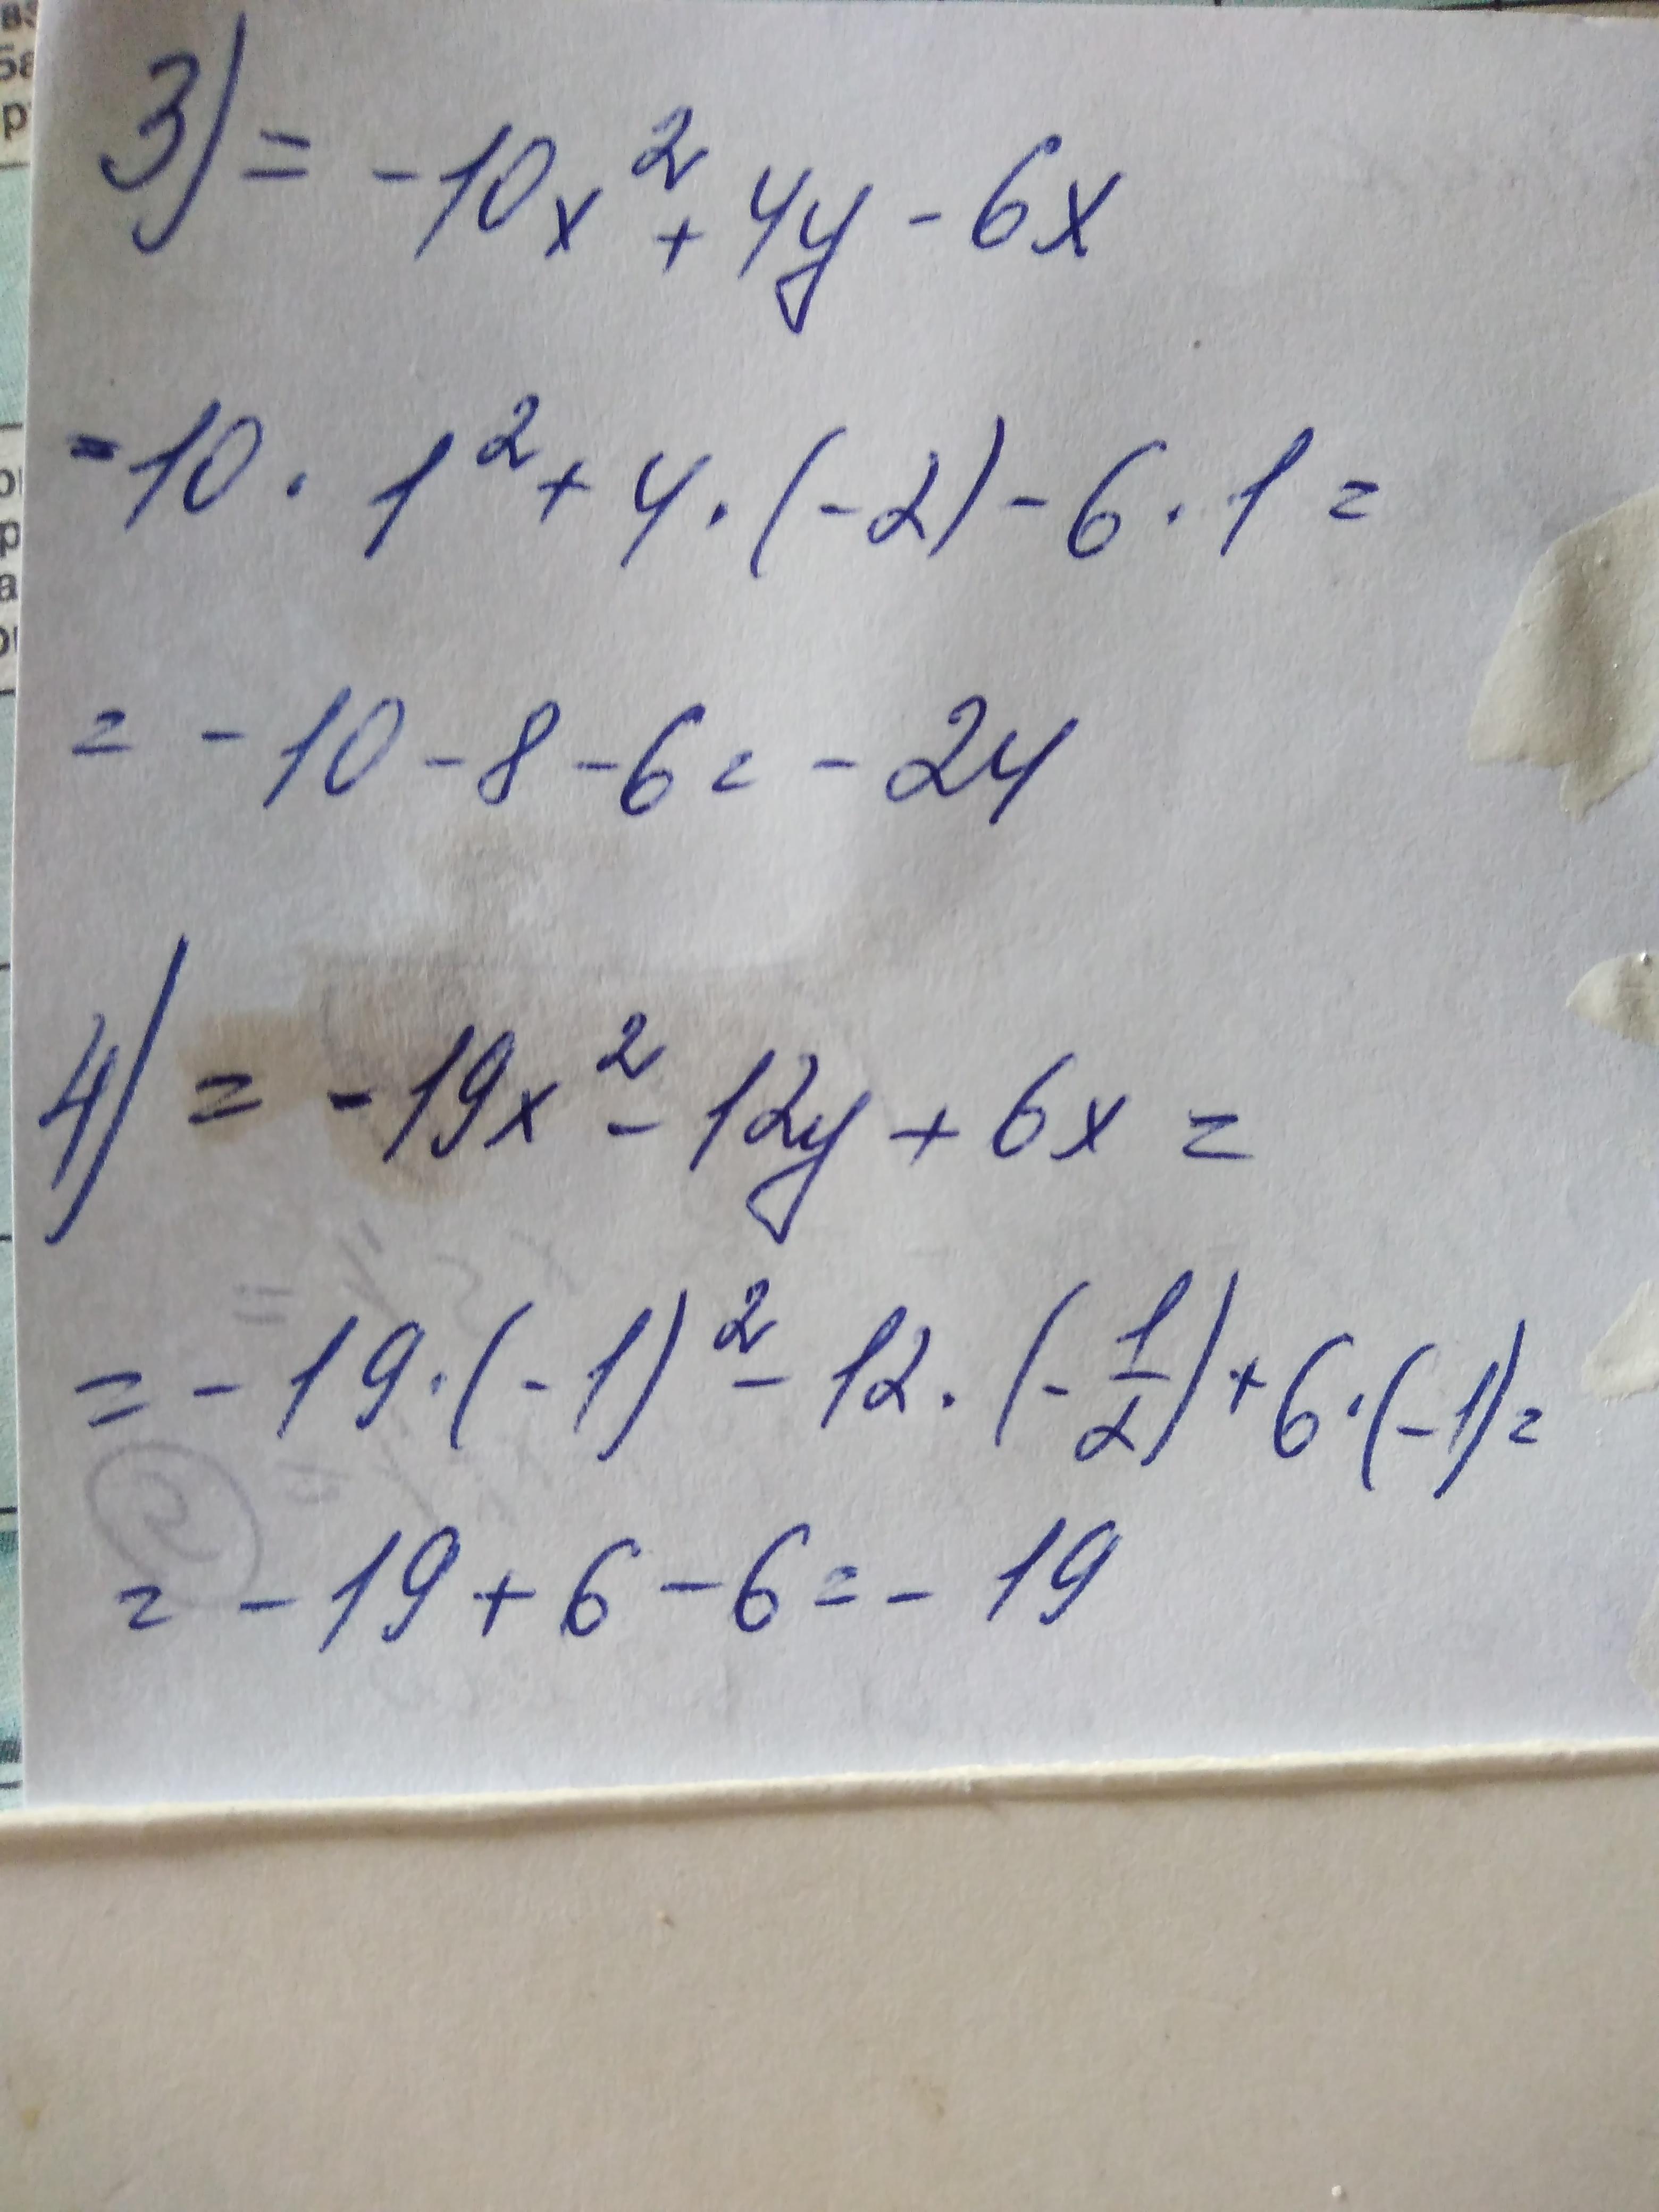 3) = -10x² + 4y - 6x
-10 · 1² + 4 · (-2) - 6 · 1 =
= -10 - 8 - 6 = -24
4) = -19x² - 12y + 6x =
= -19 · (-1)² - 12 · (-1/2) + 6 · (-1) =
= -19 + 6 - 6 = -19